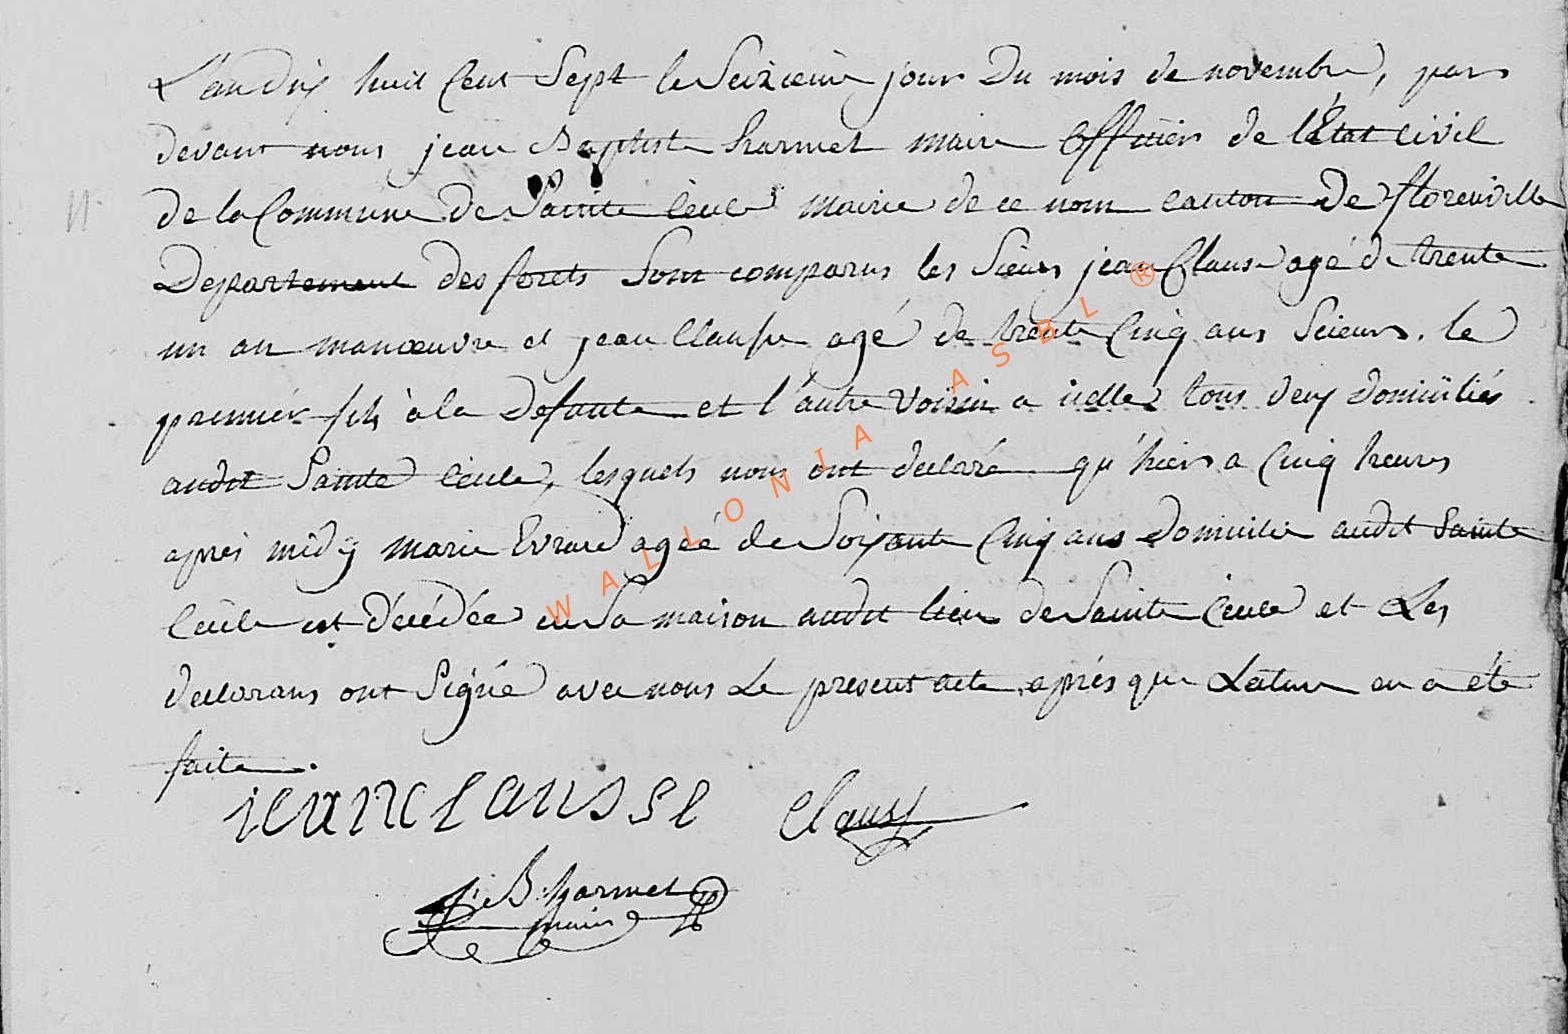 L'an dix huit Cent Sept le Seizieme jour Du mois de novembre, par
devant nous jean Baptiste harmel maire Officier de l'État Civil
De la Commune De Sainte Cécile mairie de ce nom canton De florenville
Departement des forets Sont comparus les Sieurs jean Clause agé de trente
un an manœuvre et jean Clausse agé de trente Cinq ans Scieur. le
premiér fils à la Defunte et l'autre Voisin a icelle tous deux domiciliés
audit Sainte Cécile, lesquels nous ont declaré qu'hier a Cinq heures
aprés midy marie Evrard agéé de Soixante Cinq ans domicilié audit Sainte
Cécile est décédée en Sa maison audit lieu de Sainte Cécile et Les
declarans ont Signé avec nous Le present acte aprés que Lecture en a été
faite.
jean clausse Clausse
J. B. harmel
maire
WALLONIA ASBL ®